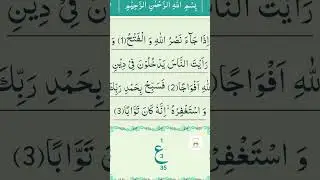 بِسْمِ اللهِ الرَّحْمٰنِ الرَّحِيْمِ
اِذَا جَآءَ نَصْرُ اللهِ وَ الْفَتْحُ(1) وَ
رَاَيْتَ النَّاسَ يَدْخُلُوْنَ فِيْ دِيْنِ
اللهِ اَفْوَاجًا(2) فَسَبِّحْ بِحَمْدِ رَبِّكَ
وَ اسْتَغْفِرْهُ ؕ اِنَّهٗ كَانَ تَوَّابًا(3)
1
ع
3
35